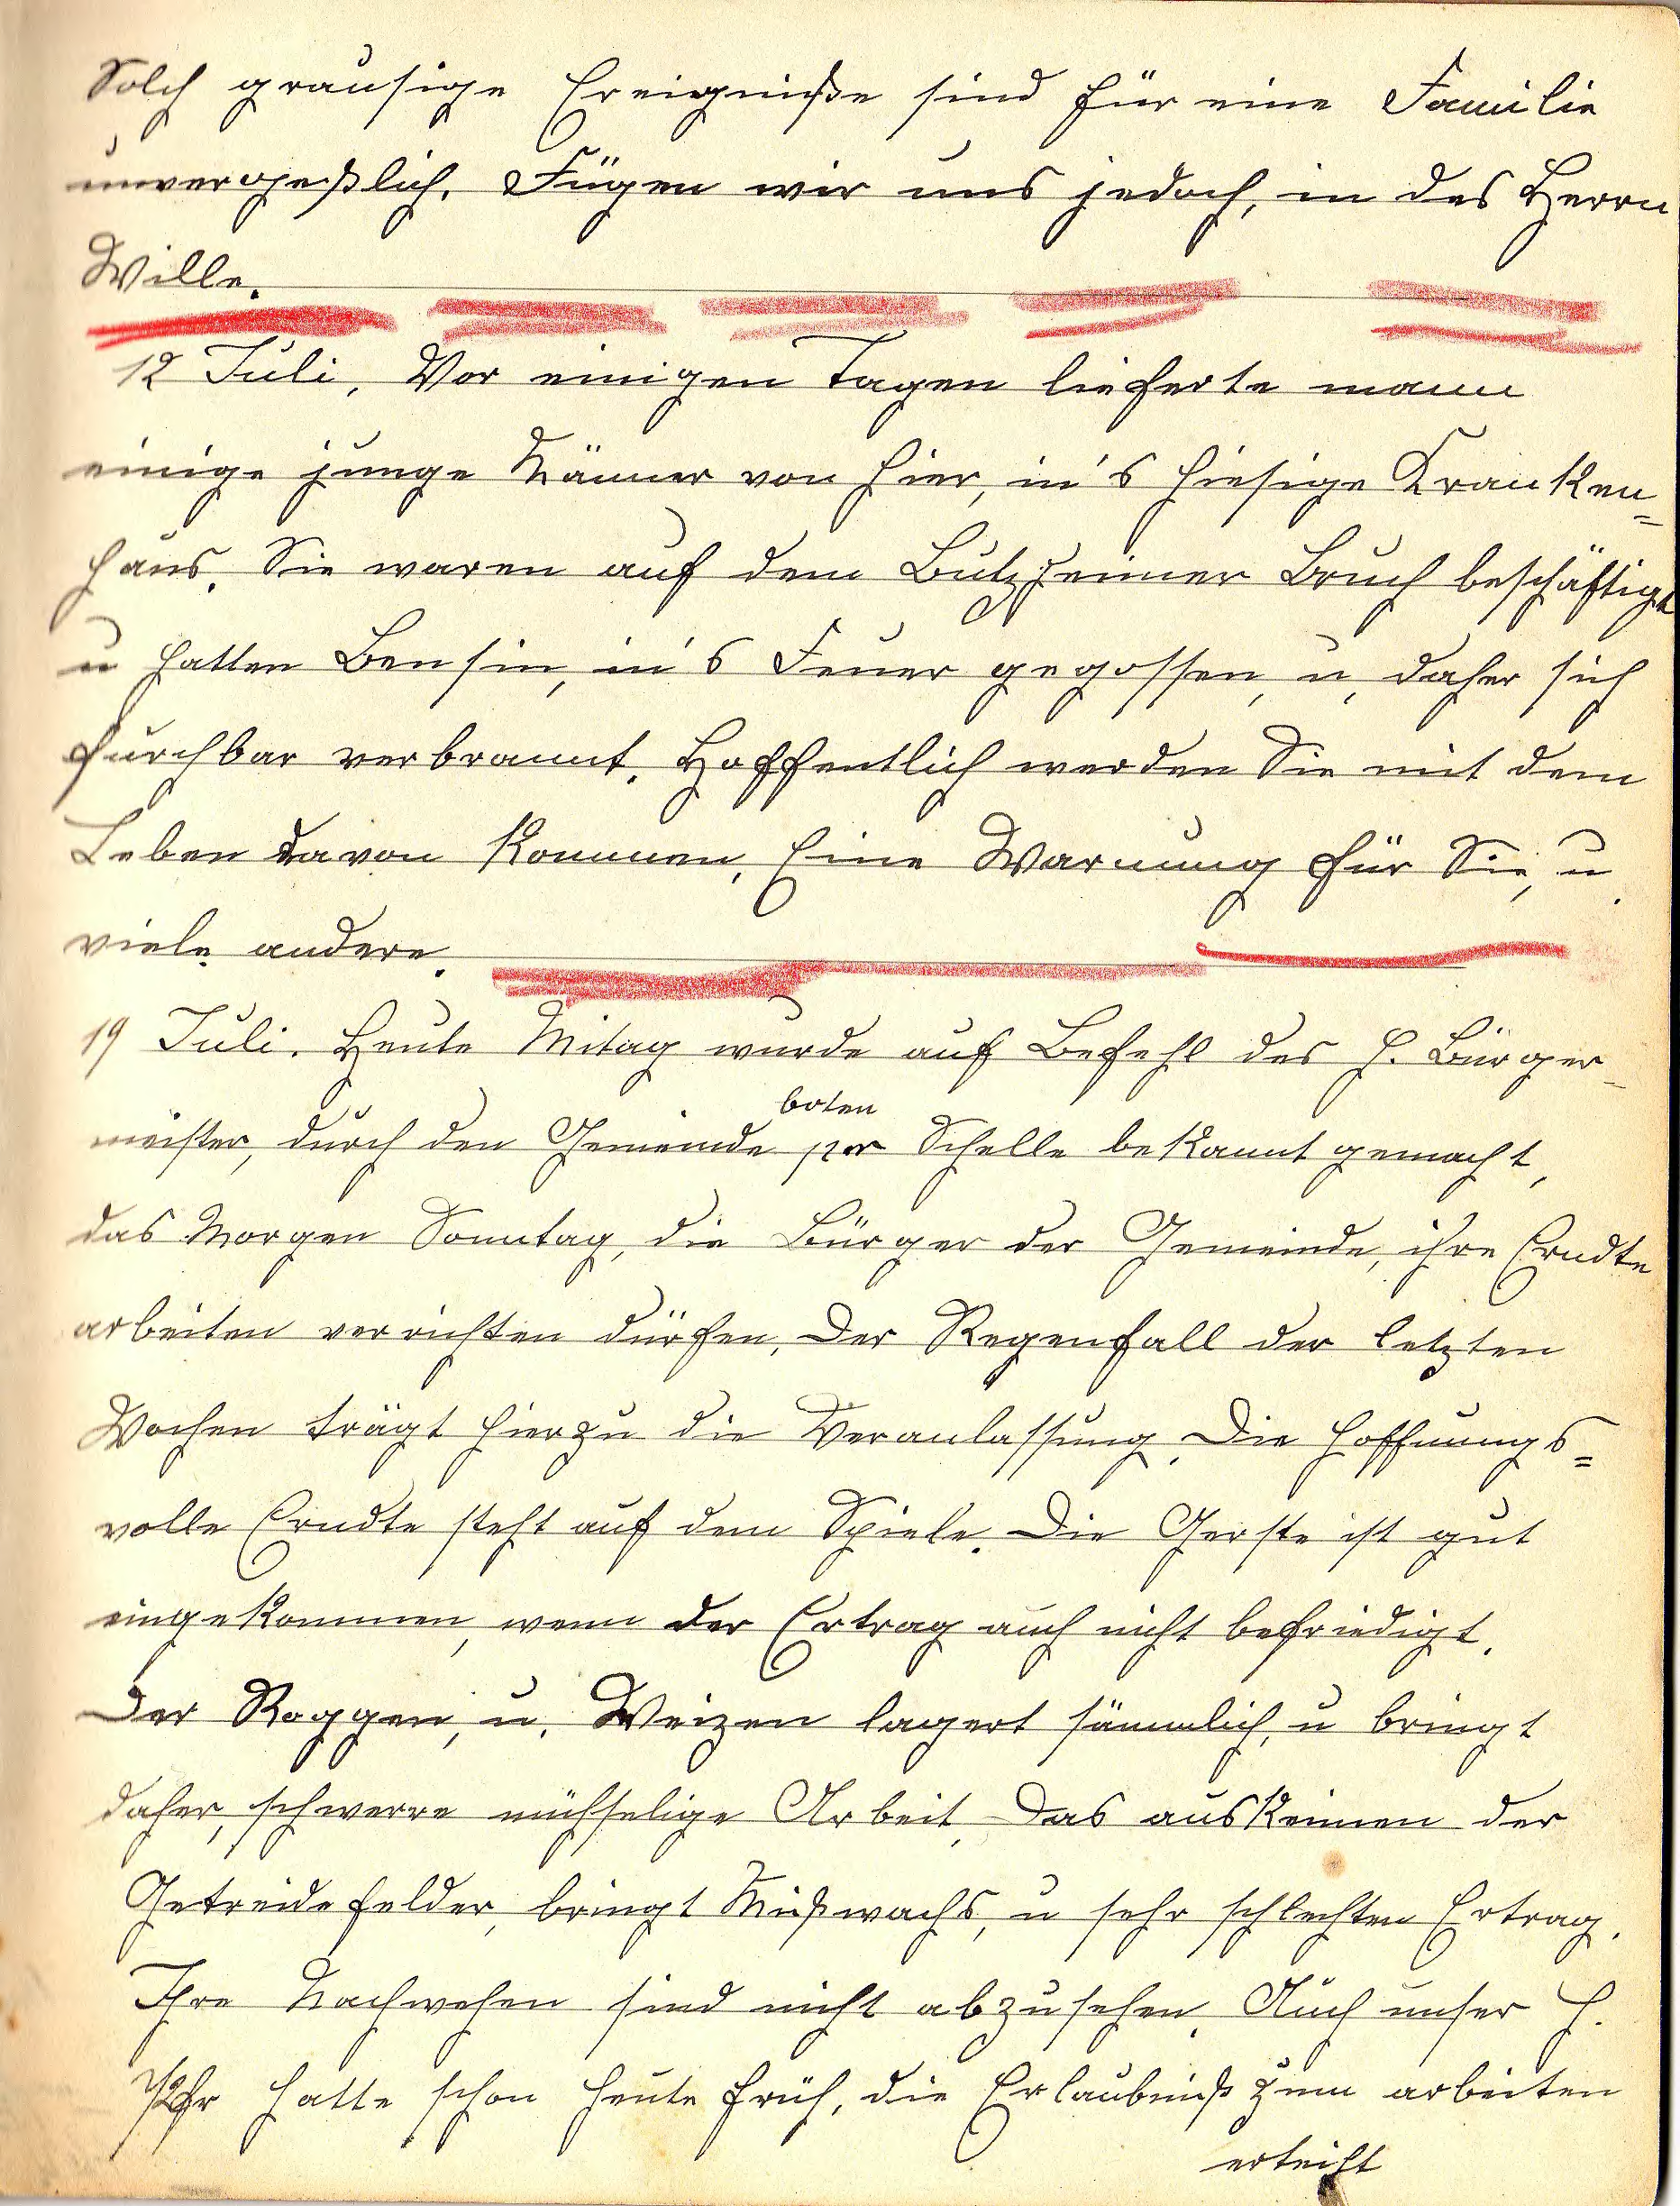 Solch grausige Ereigniße sind für eine Familie
unvergeßlich. Fügen wir uns jedoch, in des Herrn
Wille.
12 Juli. Vor einigen Tagen lieferte mann
einige junge Männer von hier, in's hiesige Kranken=
haus. Sie waren auf dem Butzheimer Bruch beschäftigt
u hatten Bensin, in's Feuer gegossen, u, daher sich
furchbar verbrannt. Hoffentlich werden Sie mit dem
Leben davon kommen. Eine Warnung für Sie, u.
viele andere.
19 Juli. Heute Mitag wurde auf Befehl des H. Bürger-
meister, durch den Gemeindeboten per Schelle bekannt gemacht,
das Morgen Sonntag, die Bürger der Gemeinde, ihre Erndte
arbeiten verrichten dürfen. Der Regenfall der letzten
Wochen trägt hierzu die Veranlassung. Die hoffnungs=
volle Erndte steht auf dem Spiele. Die Gerste ist gut
eingekommen, wenn der Ertrag auch nicht befriedigt.
Der Roggen, u. Weizen lagert sämmlich, u bringt
daher, schwerre mühselige Arbeit. Das auskeimen der
Getreidefelder, bringt Mißwachs, u sehr schlechten Ertrag.
Ihre Nachwehen sind nicht abzusehen. Auch unser H.
hatte schon heute früh, die Erlaubniß zum arbeiten
erteilt